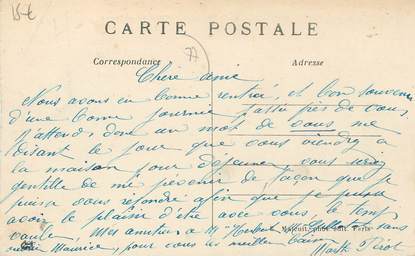 15€
77
CARTE POSTALE
Correspondance
Adresse
Chère amie
Nous avons eu bonne rentrée, et bon souvenir
d'une bonne journée passée près de vous,
j'attend, donc un mot de vous me
disant le jour que vous viendrez à
la maison pour déjeuner, vous serez
gentille de me prévenir de façon que je
puisse vous répondre afin que je puisse
avoir le plaisir d'être avec vous, le temps
Mes amitiés à Mr Herbert sans
oublier Maurice, pour vous les meilleurs baisers
Marthe